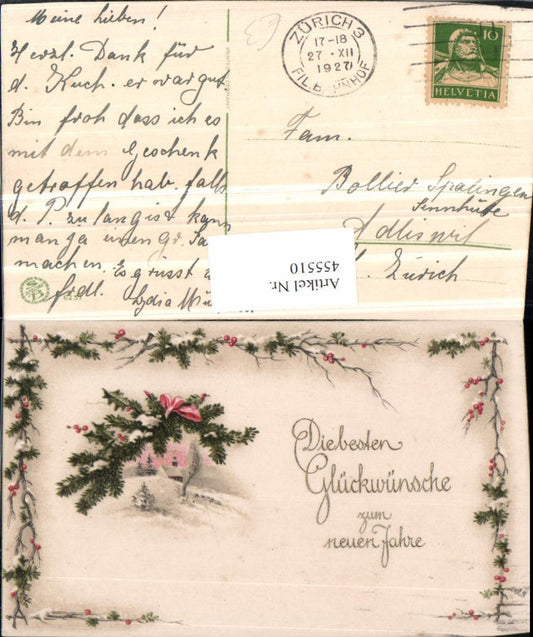 Meine lieben!
Herzl. Dank für
d. Kuch. er war gut.
Bin froh dass ich es
mit dem Geschenk
getroffen hab. falls
d. P. zu lang ist kann
man ja einen gr. Sa
machen. Es grüsst
frdl. Lydia
ZÜRICH 3
17-18
27 · XII
1927
FIL. BAHNHOF
10
HELVETIA
Fam.
Bollier Spalinger
Sennhütte
Adliswil
Zürich
Artikel Nr.
455510
Die besten
Glückwünsche
zum
neuen Jahre